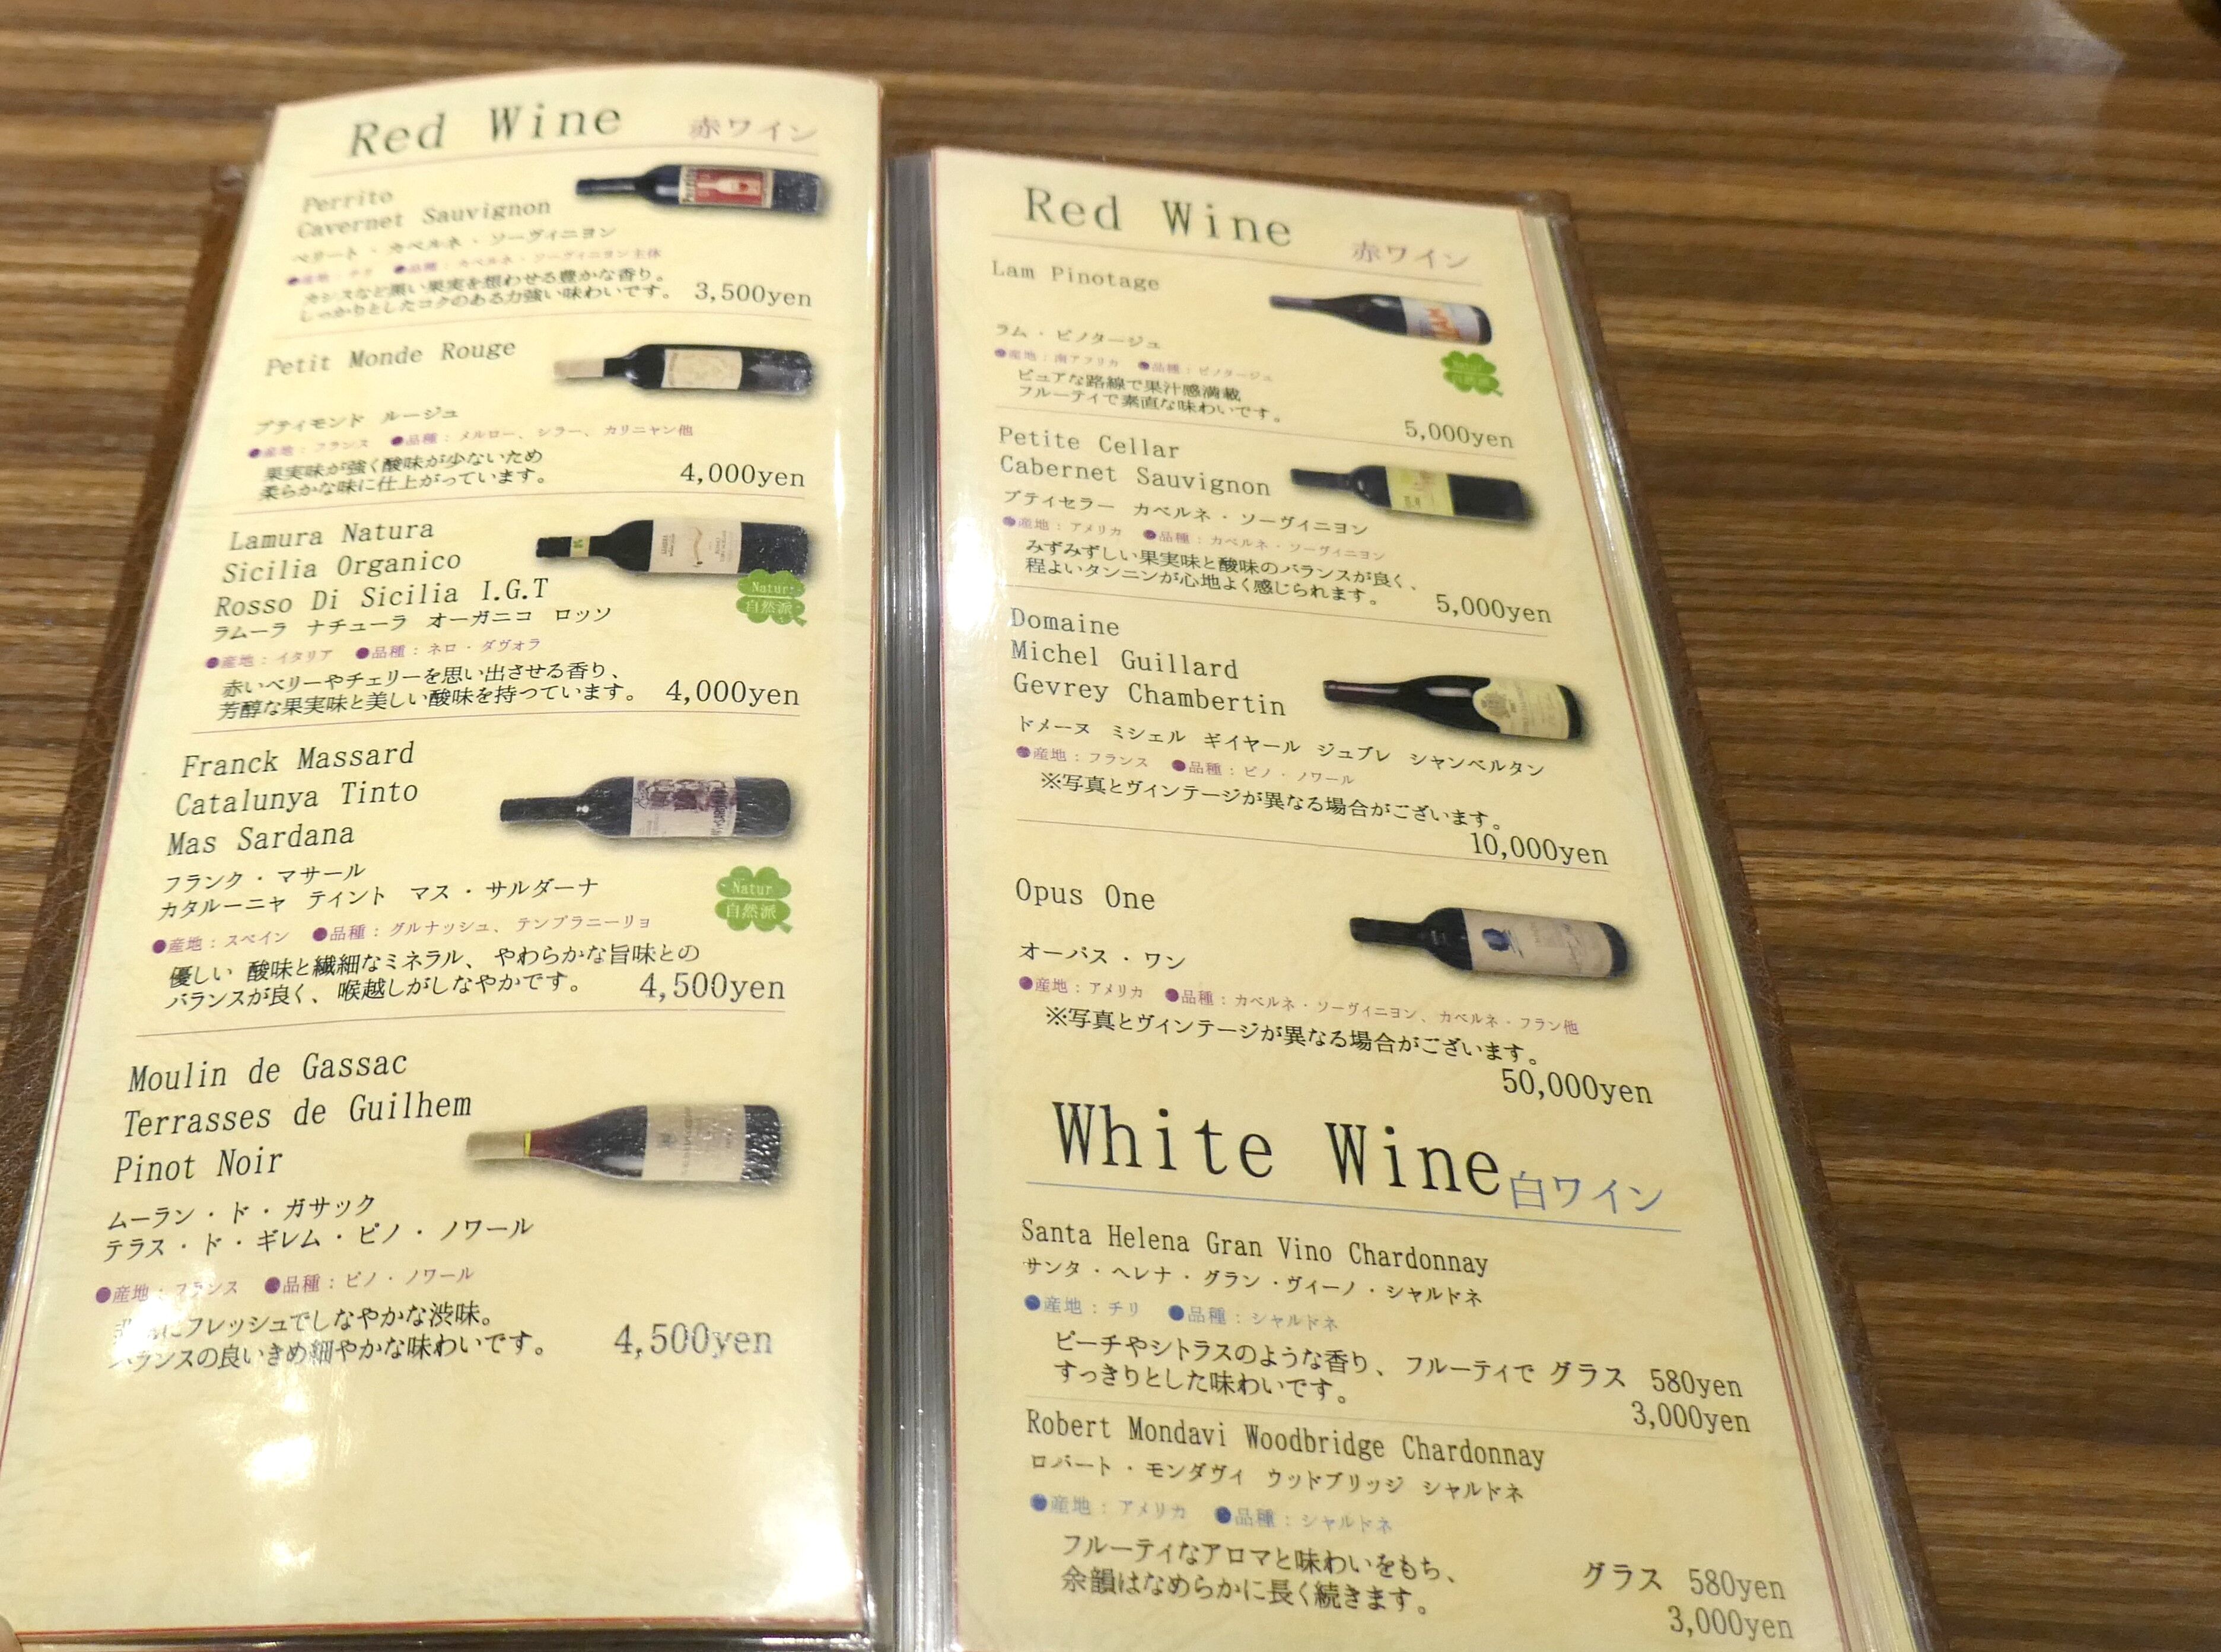 Red Wine 赤ワイン
Perrito
Cavernet Sauvignon
ペリート・カベルネ・ソーヴィニヨン
●産地：チリ ●品種：カベルネ・ソーヴィニヨン主体
カシスなど黒い果実を想わせる豊かな香り。
しっかりとしたコクのある力強い味わいです。 3,500yen
Petit Monde Rouge
プティモンド ルージュ
●産地：フランス ●品種：メルロー、シラー、カリニャン他
果実味が強く酸味が少ないため
柔らかな味に仕上がっています。 4,000yen
Lamura Natura
Sicilia Organico
Rosso Di Sicilia I.G.T
Natur
自然派
ラムーラ ナチューラ オーガニコ ロッソ
●産地：イタリア ●品種：ネロ・ダヴォラ
赤いベリーやチェリーを思い出させる香り、
芳醇な果実味と美しい酸味を持つています。 4,000yen
Franck Massard
Catalunya Tinto
Mas Sardana
フランク・マサール
カタルーニャ ティント マス・サルダーナ
Natur
自然派
●産地：スペイン ●品種：グルナッシュ、テンプラニーリョ
優しい 酸味と繊細なミネラル、やわらかな旨味との
バランスが良く、喉越しがしなやかです。 4,500yen
Moulin de Gassac
Terrasses de Guilhem
Pinot Noir
ムーラン・ド・ガサック
テラス・ド・ギレム・ピノ・ノワール
●産地：フランス ●品種：ピノ・ノワール
にフレッシュでしなやかな渋味。
バランスの良いきめ細やかな味わいです。 4,500yen
Red Wine 赤ワイン
Lam Pinotage
ラム・ピノタージュ
●産地：南アフリカ ●品種：ピノタージュ
ピュアな路線で果汁感満載
フルーティで素直な味わいです。
5,000yen
Petite Cellar
Cabernet Sauvignon
プティセラー カベルネ・ソーヴィニヨン
●産地：アメリカ ●品種：カベルネ・ソーヴィニヨン
みずみずしい果実味と酸味のバランスが良く、
程よいタンニンが心地よく感じられます。 5,000yen
Domaine
Michel Guillard
Gevrey Chambertin
ドメーヌ ミシェル ギイヤール ジュブレ シャンベルタン
●産地：フランス ●品種：ピノ・ノワール
※写真とヴィンテージが異なる場合がございます。
10,000yen
Opus One
オーパス・ワン
●産地：アメリカ ●品種：カベルネ・ソーヴィニヨン、カベルネ・フラン他
※写真とヴィンテージが異なる場合がございます。
50,000yen
White Wine 白ワイン
Santa Helena Gran Vino Chardonnay
サンタ・ヘレナ・グラン・ヴィーノ・シャルドネ
●産地：チリ ●品種：シャルドネ
ピーチやシトラスのような香り、フルーティで グラス 580yen
すっきりとした味わいです。 3,000yen
Robert Mondavi Woodbridge Chardonnay
ロバート・モンダヴィ ウッドブリッジ シャルドネ
●産地：アメリカ ●品種：シャルドネ
フルーティなアロマと味わいをもち、
余韻はなめらかに長く続きます。 グラス 580yen
3,000yen